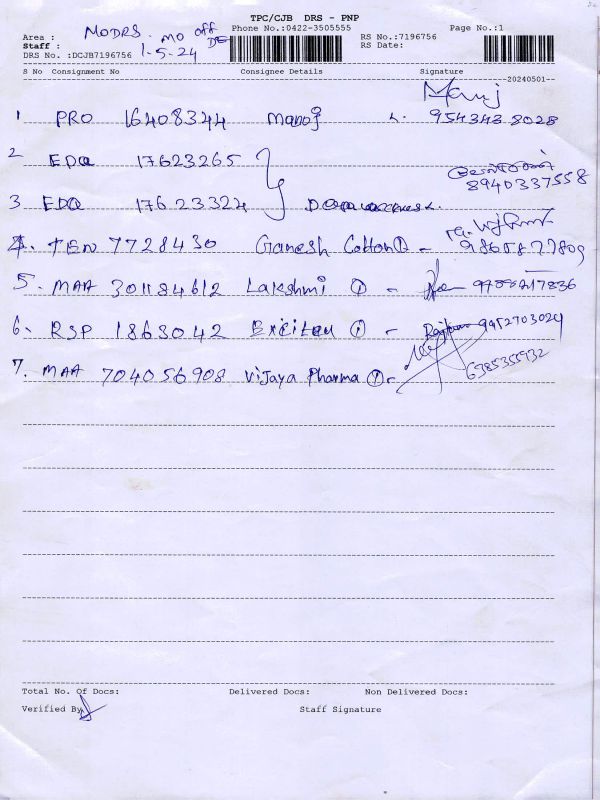 TPC/CJB DRS - PNP
Phone No.:0422-3505555
Page No.:1
Area : MODRS. MO Off
Staff :
RS No.:7196756
DRS No. :DCJB7196756 1-5-24
RS Date:
S No Consignment No Consignee Details Signature
20240501
Manj
1 PRO 16408344 Manoj 9543438028
2 EDQ 17623265
8940337558
3 EDQ 17623324
4. TEN 7728430 Ganesh Cotton ① -
5. MAA 301184612 Lakshmi ① -
6. RSP 1863042 ① - 9952703024
7. MAA 704056908 Vijaya Pharma ① -
Total No. Of Docs: Delivered Docs: Non Delivered Docs:
Verified By
Staff Signature